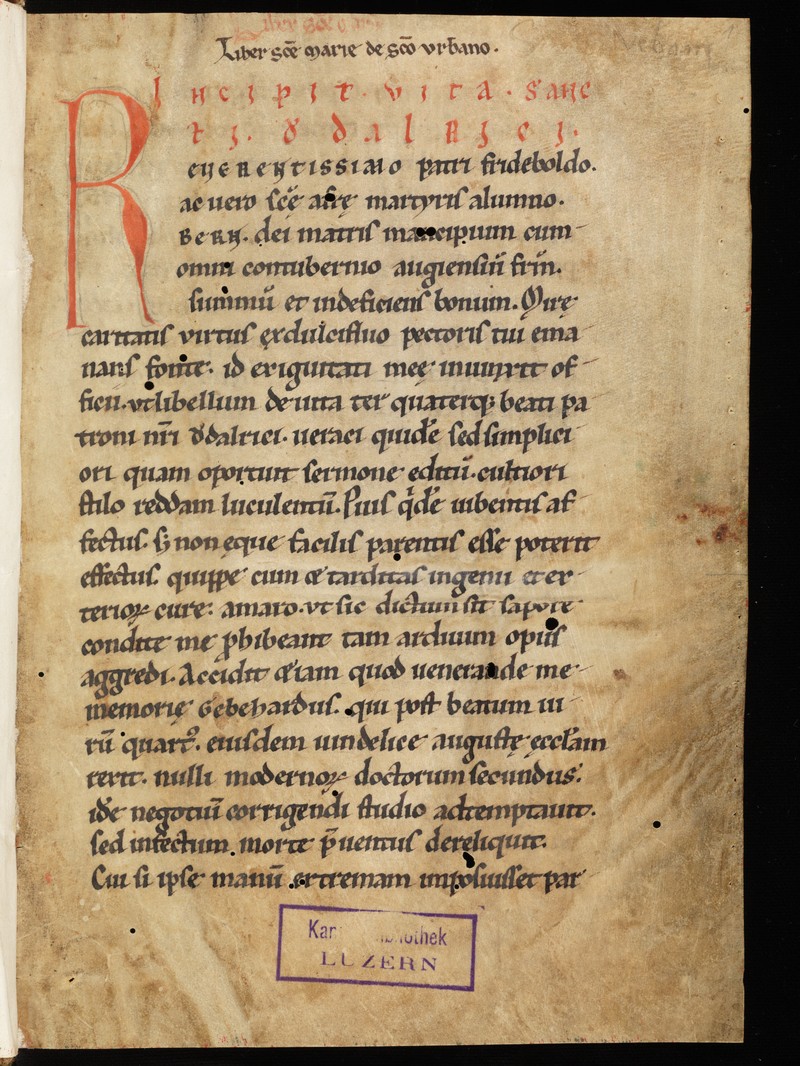 Liber scē marie de scō vrbano.
Incipit. vita. sanc
ti. Ödalrici.
Reuerentissimo patri frideboldo.
ac uero scē afrę martyris alumno.
Bern. dei matris mancipium cum
omni contubernio augiensiū frm̄.
summū et indeficiens bonum. Quię
caritatis virtus ex dulcifluo pectoris tui ema
nans fonte. id exiguitati meę iniunxit of
ficii. vt libellum de uita ter quaterq; beati pa
troni nr̄i Ödalrici. ueraci quidē sed simplici
ori quam oportuit sermone editū. cultiori
stilo reddam luculentū. Pius qͥdē iubentis af
fectus. s; non eque facilis parentis esse poterit
effectus. quippe cum et tarditas ingenii et ex
terioꝝ curę. amaro. vt sic dictum sit sapore
condite me ꝓhibeant tam arduum opus
aggredi. Accidit etiam quod venerande me
memorię Gebehardus. qui post beatum ui
rū quart9. eiusdem uindelice augustę ecclām
rexit. nulli modernoꝝ doctorum secundus.
idē negotiū corrigendi studio adtemptauit.
sed infectum. morte p̄uentus dereliquit.
Cui si ipse manū extremam imposuisset par
LUZERN